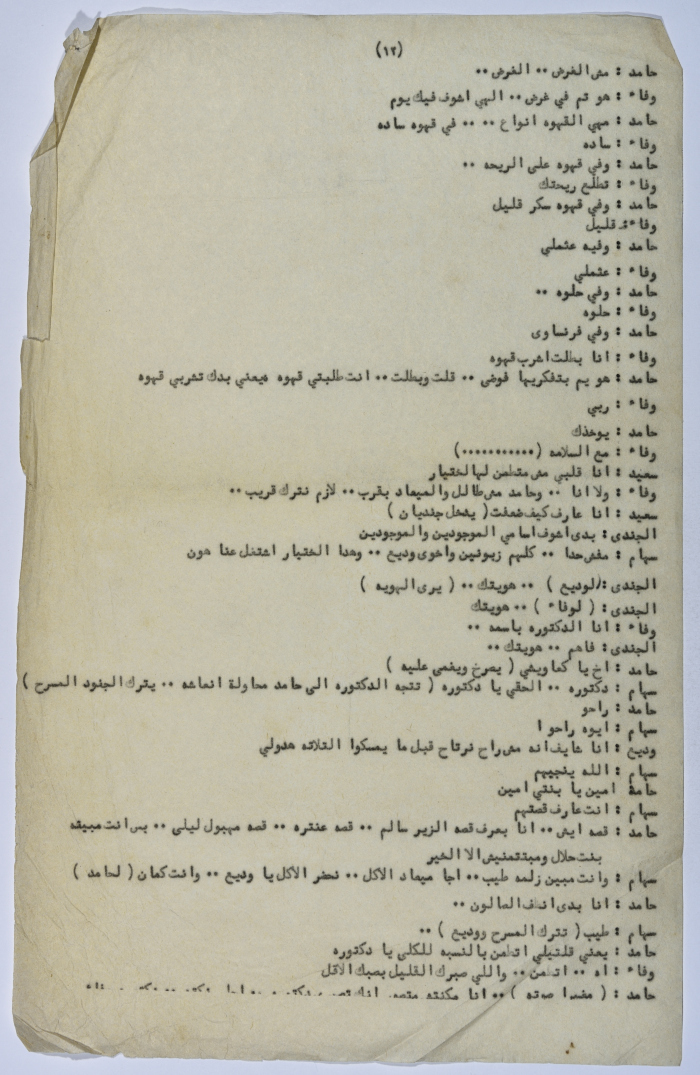 (١٢)
حامد : مش الغرض ٠٠ الغرض ٠٠
وفاء : هو تم في غرض ٠٠ الهي اشوف فيك يوم
حامد : مهي القهوه انواع ٠٠ ٠٠ في قهوه ساده
وفاء : ساده
حامد : وفي قهوه على الريحه ٠٠
وفاء : تطلع ريحتك
حامد : وفي قهوه سكر قليل
وفاء : قليل
حامد : وفيه عثملي
وفاء : عثملي
حامد : وفي حلوه ٠٠
وفاء : حلوه
حامد : وفي فرنساوى
وفاء : انا بطلت اشرب قهوه
حامد : هو يم بتفكريها فوضى ٠٠ قلت وبطلت ٠٠ انت طلبتي قهوه يعني بدك تشربي قهوه
وفاء : ربي
حامد : يوخذك
وفاء : مع السلامه (٠٠٠٠٠٠٠٠٠٠٠)
سعيد : انا قلبي مش متطمن لهالختيار
وفاء : ولا انا ٠٠ وحامد مش طالل والميعاد بقرب ٠٠ لازم نترك قريب ٠٠
سعيد : انا عارف كيف ضعفت ( يدخل جنديان )
الجندى : بدى اشوف اسامي الموجودين والموجودين
سهام : مفش حدا ٠٠ كلهم زبونين واخوى وديع ٠٠ وهدا الختيار اشتغل عنا هون
الجندى : (لوديع ) ٠٠ هويتك ٠٠ ( يرى الهويه )
الجندى : ( لوفاء ) ٠٠ هويتك
وفاء : انا الدكتوره باسمه ٠٠
الجندى : فاهم ٠٠ هويتك ٠٠
حامد : اخ يا كعاويشي ( يصرخ ويغمى عليه )
سهام : دكتوره ٠٠ الحقي يا دكتوره ( تتجه الدكتوره الى حامد محاولة انعاشه ٠٠ يترك الجنود المسرح )
حامد : راحو
سهام : ايوه راحوا
وديع : انا شايف انه مش راح نرتاح قبل ما يمسكوا التلاته هدولي
سهام : الله ينجيهم
حامد امين يا بنتي امين
سهام : انت عارف قصتهم
حامد : قصه ايش ٠٠ انا بعرف قصه الزير سالم ٠٠ قصه عنتره ٠٠ قصه مهبول ليلى ٠٠ بس انت مبينه
بنت حلال ومبتتمنيش الا الخير
سهام : وانت مبين زلمه طيب ٠٠ اجا ميعاد الاكل ٠٠ نحضر الاكل يا وديع ٠٠ وانت كمان ( لحامد )
حامد : انا بدى انظف الصالون ٠٠
سهام : طيب ( تترك المسرح ووديع ) ٠٠
حامد : يعني قلتيلي اتطمن بالنسبه للكلى يا دكتوره
وفاء : اه ٠٠ اتطمن ٠٠ واللي صبرك القليل يصبك الاقل
حامد : ( مغيرا صوته ) ٠٠ انا مكنتش متصور انك